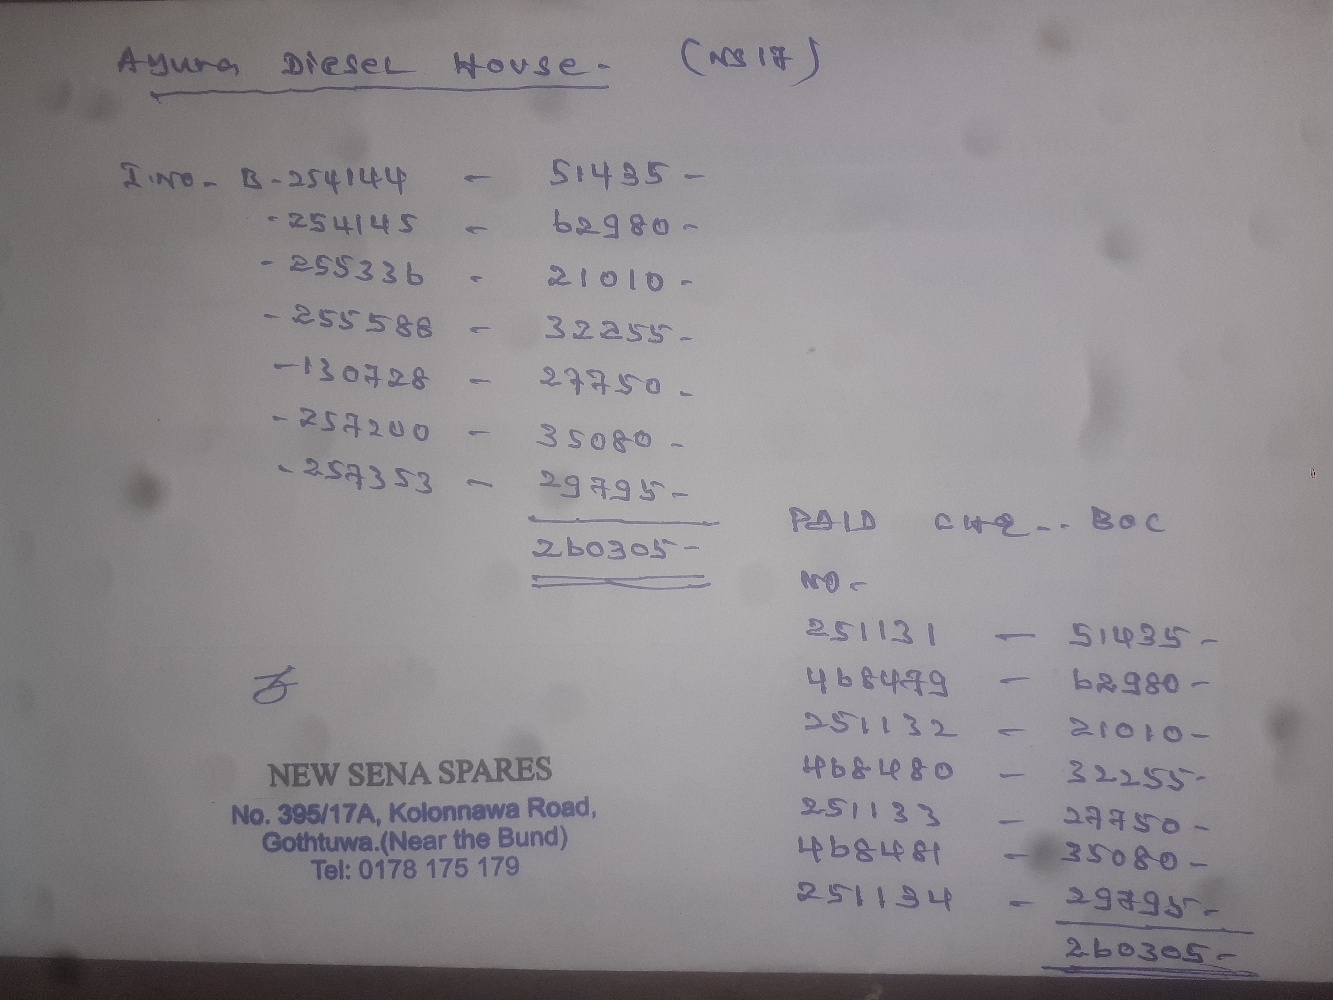 Ayura Diesel House - (NS 17)
I.NO - B - 254144 - 51435 -
- 254145 - 62980 -
- 255336 - 21010 -
- 255588 - 32255 -
- 130728 - 27750 -
- 257200 - 35080 -
- 257353 - 29795 -
260305 -
PAID CHQ - - BOC
NO -
251131 - 51435 -
468479 - 62980 -
251132 - 21010 -
468480 - 32255 -
251133 - 27750 -
468481 - 35080 -
251134 - 29795 -
260305 -
NEW SENA SPARES
No. 395/17A, Kolonnawa Road,
Gothtuwa.(Near the Bund)
Tel: 0178 175 179